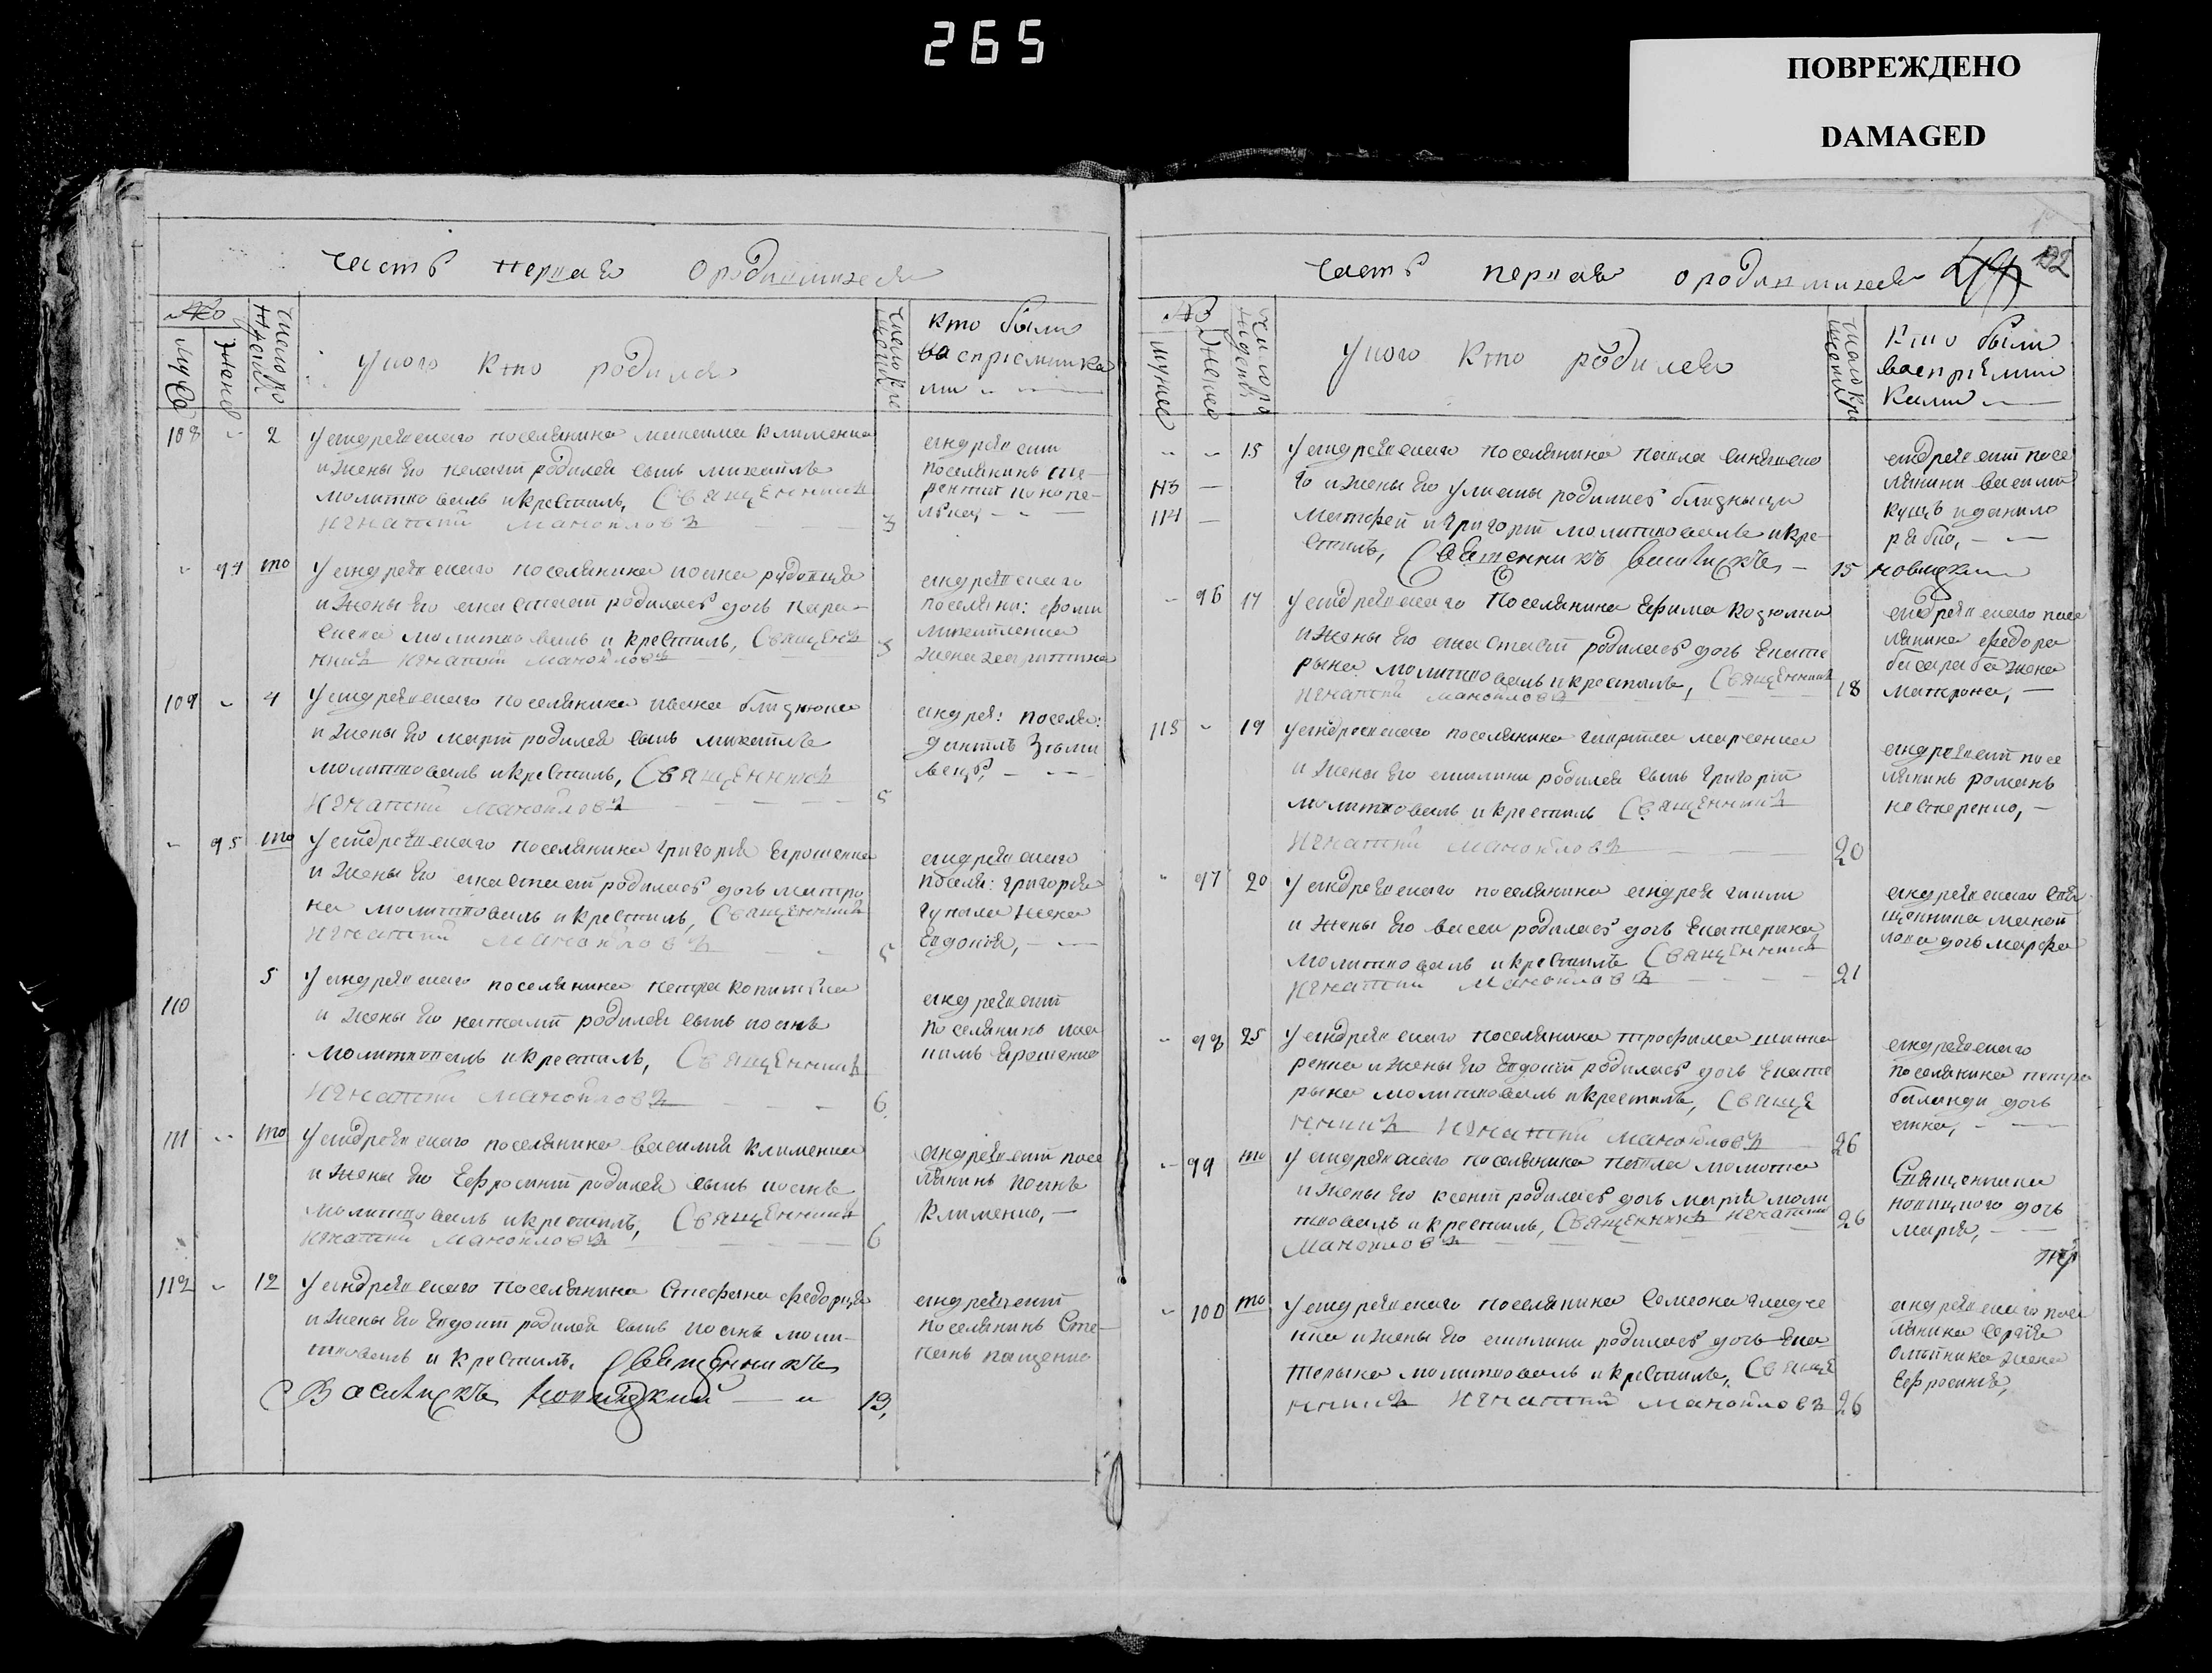 265
ПОВРЕЖДЕНО
DAMAGED
часть первая о родившихся
№
муже
жене
число рождений
у кого кто родился
число крещения
кто были
воспріемника
ми
108 2 У андреевскаго поселянина максима клименка
и жены его пелагіи родился сынъ михаилъ
молитвовалъ и крестилъ, Священникъ
Игнатий Манойловъ 3
андреевскій
поселянинъ
94 то У андреевскаго поселянина иоана
и жены его анастасіи родилась дочь пара-
скева молитвовалъ и крестилъ, Священ
никъ Игнатий Манойловъ 3
андреевскаго
поселяни: фомы
михайленка
жена
109 4 У андреевскаго поселянина ивана близнюка
и жены его марфы родился сынъ михаилъ
молитвовалъ и крестилъ, Священникъ
Игнатий Манойловъ 5
андрее: поселя:
даніилъ
95 то У андреевскаго поселянина григорія Ерошенка
и жены его анастасіи родилась дочь матро
на молитвовалъ и крестилъ, Священникъ
Игнатий Манойловъ 5
андреевскаго
поселя: григорія
жена
Евдокія,
110 5 У андреевскаго поселянина петра
и жены его наталіи родился сынъ иоанъ
молитвовалъ и крестилъ, Священникъ
Игнатий Манойловъ 6
андреевскій
поселянинъ
Ерошенко
111 то У андреевскаго поселянина василія клименка
и жены его Ефросиніи родился сынъ иоанъ
молитвовалъ и крестилъ, Священникъ
Игнатий Манойловъ 6
андреевскій посе
лянинъ иоанъ
клименко,
112 12 У андреевскаго поселянина Стефана
и жены его Евдокіи родился сынъ иоанъ моли-
твовалъ и крестилъ, Священникъ
Василискъ Новицкий 13,
андреевский
поселянинъ Сте-
панъ пащенко
часть первая о родившихся 122
№
муже
женс
число рождений
у кого кто родился
число крещения
Кто были
воспріемни
ками
15 У андреевскаго поселянина павла синявско
113 го и жены его улианы родились близнецы
114 матфей и григорій молитвовалъ и кре-
стилъ, Священникъ Василискъ 15 новицкий
андреевскій посе
лянинъ василій
кущъ и данило
рябко,
96 17 У андреевскаго Поселянина Ефима
и жены его анастасіи родилась дочь Екате
рына молитвовалъ и крестилъ, Священникъ
Игнатий Манойловъ 18
андреевскаго посе
лянина федора
басараба жена
матрона,
115 19 У андреевскаго поселянина
и жены его родился сынъ григорій
молитвовалъ и крестилъ Священникъ
Игнатий Манойловъ 20
андреевскій посе
лянинъ романъ
нестеренко,
97 20 У андреевскаго поселянина андрея
и жены его родилась дочь Екатерина
молитвовалъ и крестилъ Священникъ
Игнатий Манойловъ 21
андреевскаго свя
щенника маной
лова дочь марфа
98 25 У андреевскаго поселянина трофима шинка
ренка и жены его Евдокіи родилась дочь Екате
рына молитвовалъ и крестилъ, Свяще
нникъ Игнатий Манойловъ 26
андреевскаго
поселянина петра
баланди дочь
анна,
99 то У андреевскаго поселянина павла
и жены его ксеніи родилась дочь марія моли
твовалъ и крестилъ, Священникъ Игнатий 26
Манойловъ
Священника
новицкого дочь
марія,
100 то У андреевскаго поселянина Семеона
и жены его родилась дочь Ека
терына молитвовалъ и крестилъ, Свяще
нникъ Игнатий Манойловъ 26
андреевскаго посе
лянина Сергія
жена
Ефросинія,